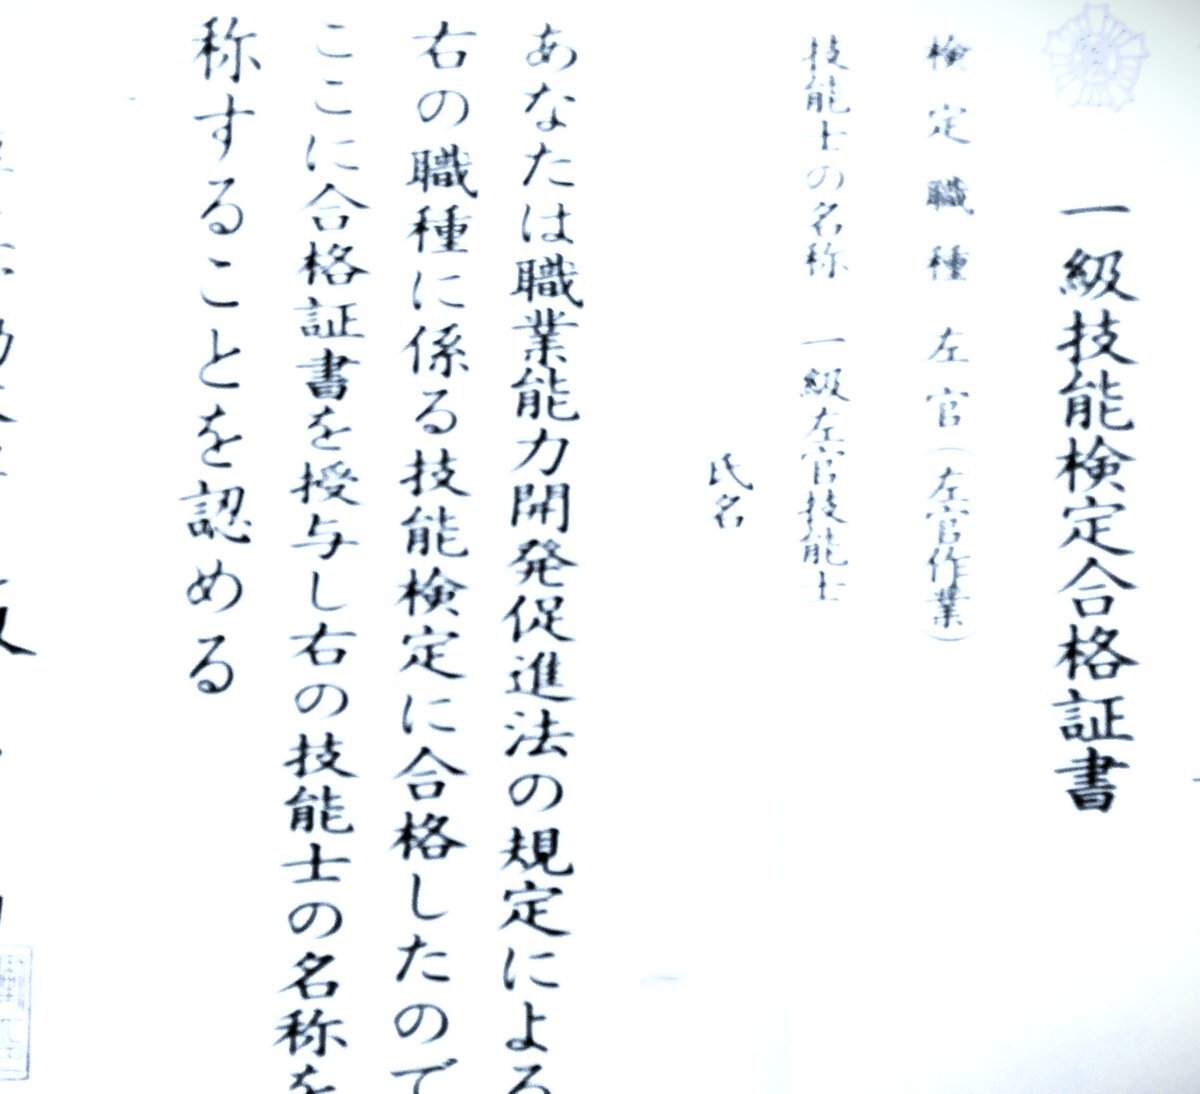 一級技能検定合格証書
検定職種 左官(左官作業)
技能士の名称 一級左官技能士
氏名
あなたは職業能力開発促進法の規定による
右の職種に係る技能検定に合格したので
ここに合格証書を授与し右の技能士の名称を
称することを認める